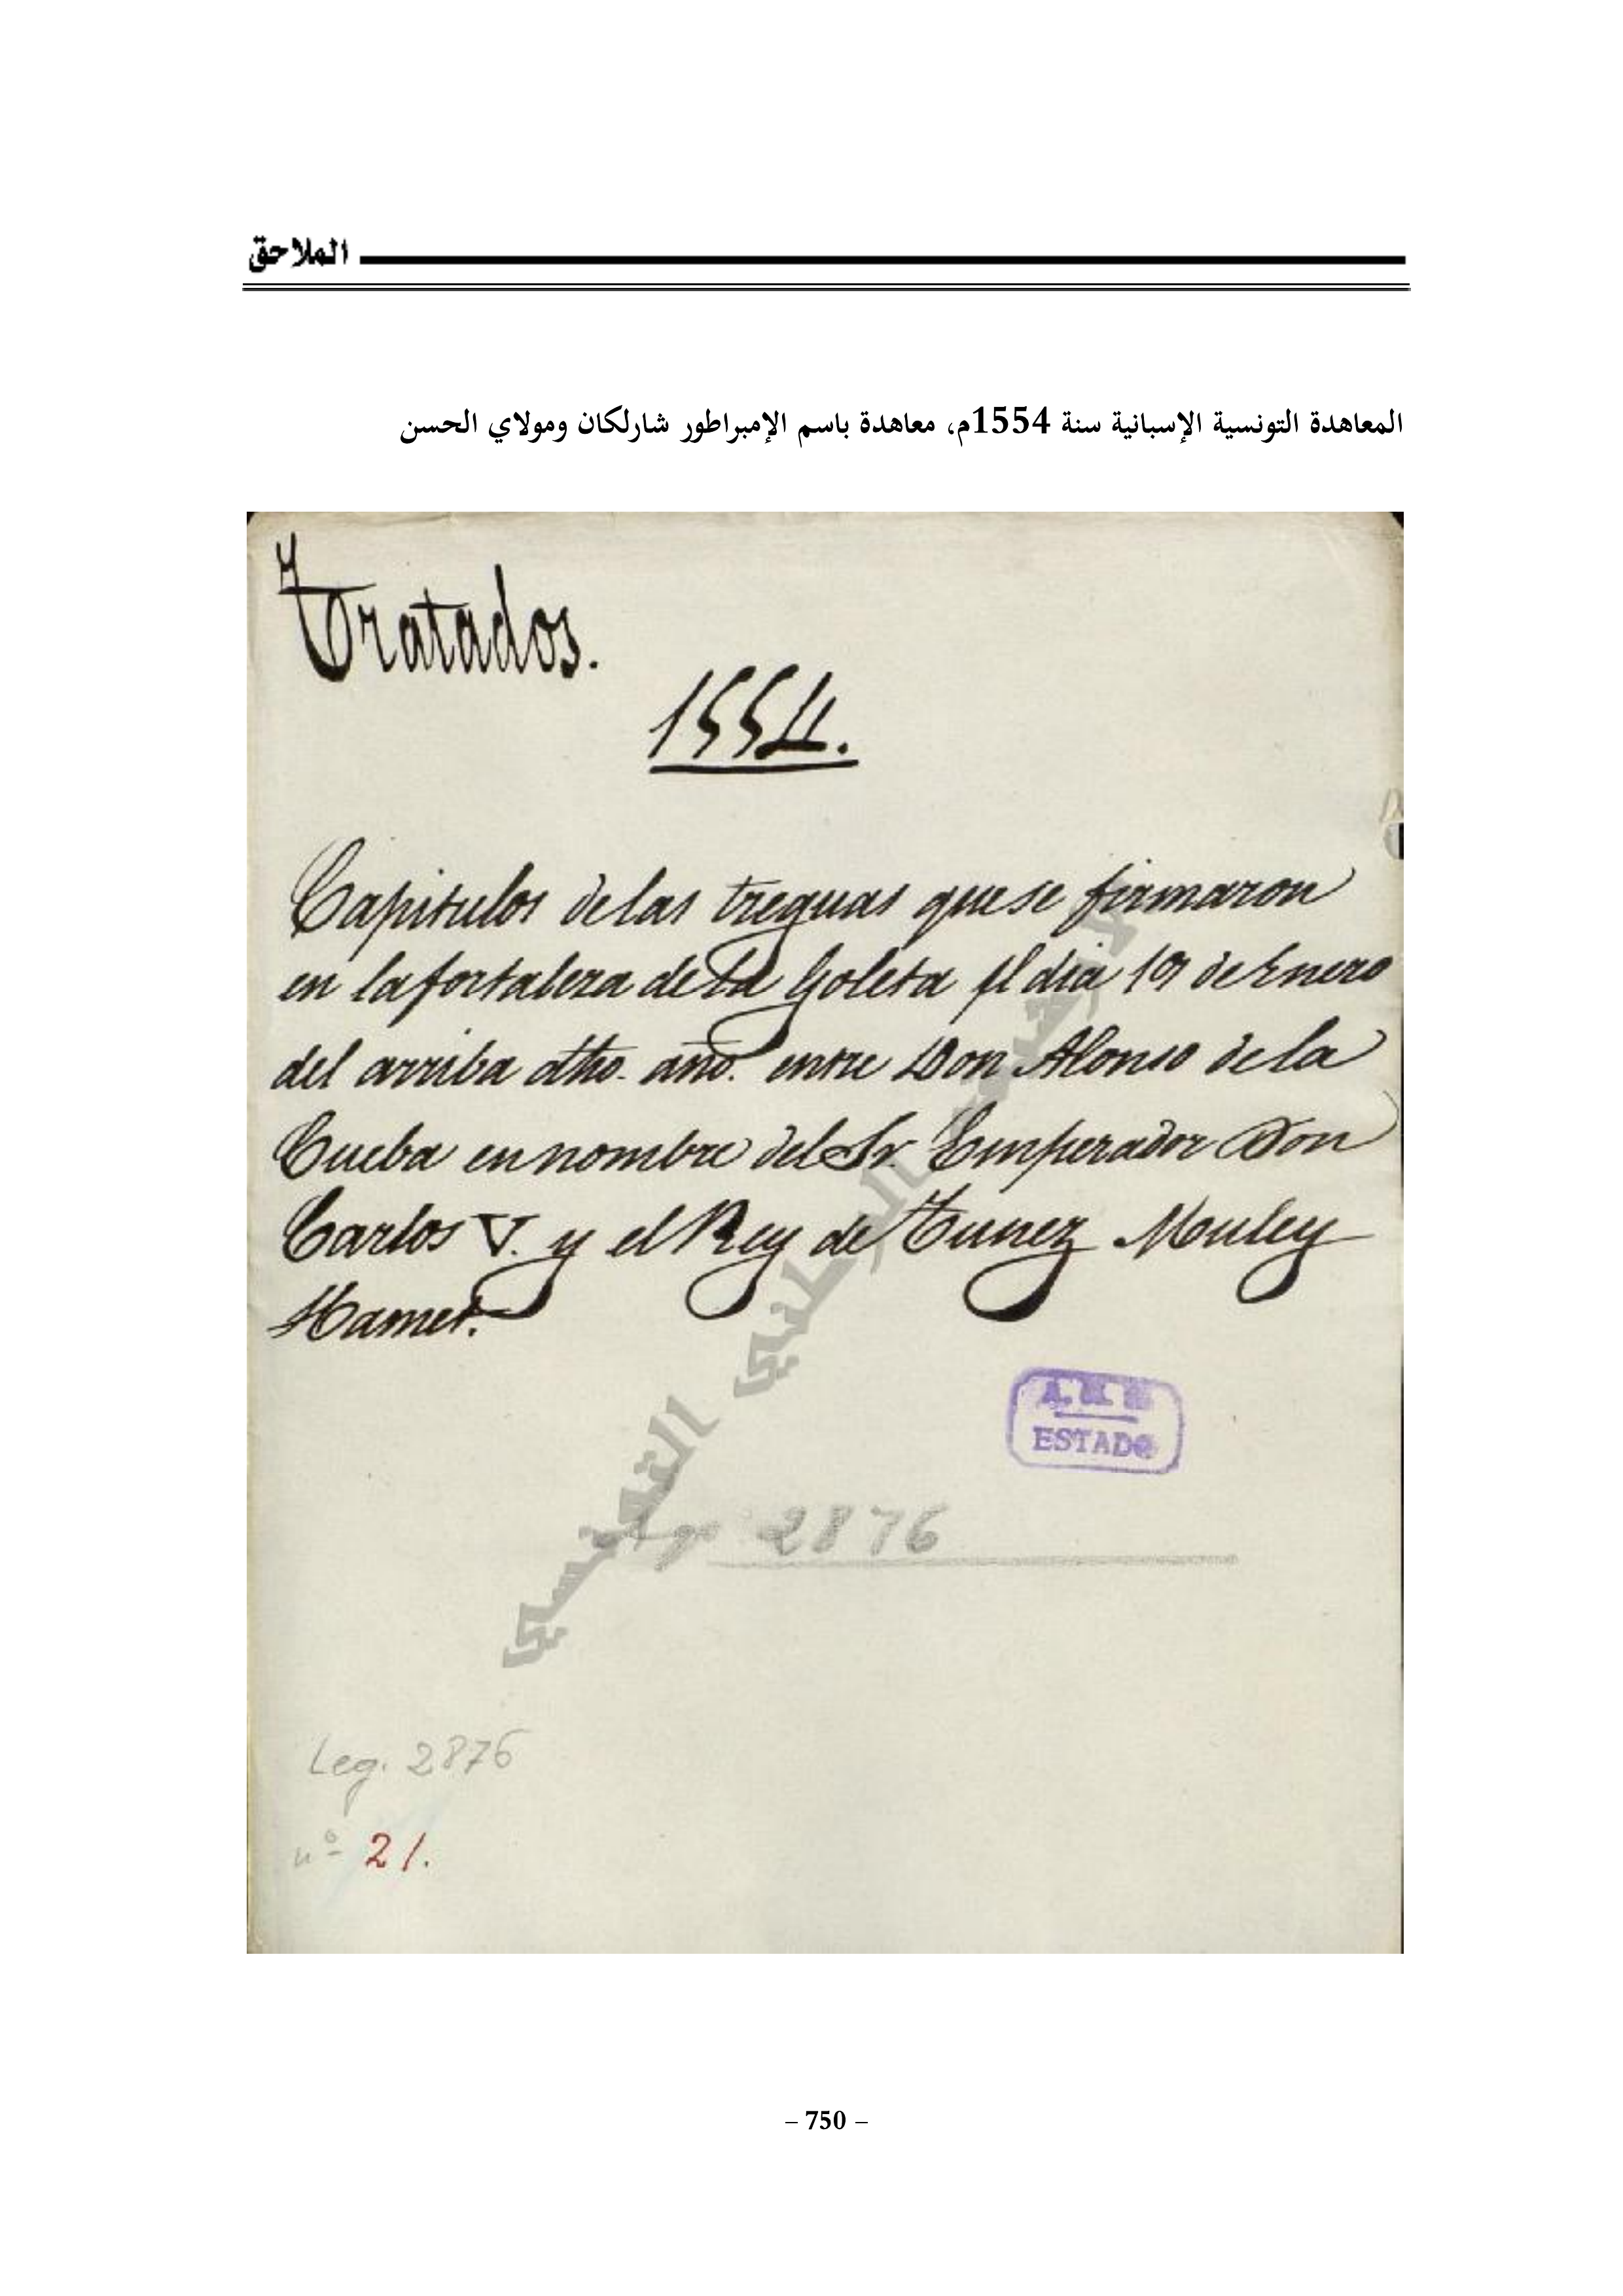 الملاحق
المعاهدة التونسية الإسبانية سنة 1554م، معاهدة باسم الإمبراطور شارلكان ومولاي الحسن
Tratados.
1554.
Capitulos de las treguas que se firmaron
en la fortaleza de la Goleta el dia de Enero
del arriba dho. año. entre Don Alonso de la
Cueba en nombre del Sr. Emperador Don
Carlos V. y el Rey de Tunez Muley
Hamet.
ESTADO
2876
التونسي
Leg. 2876
nº 21.
– 750 –